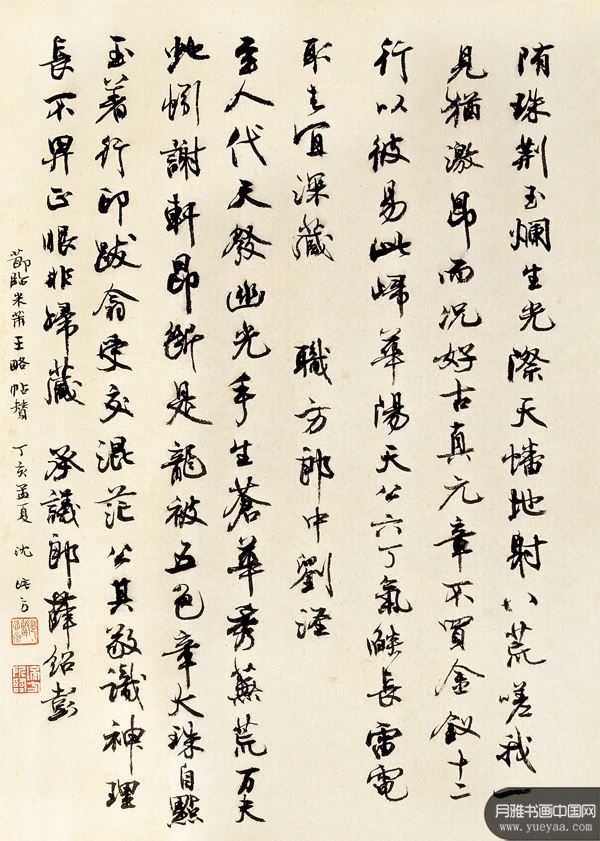 隋珠荆玉爛生光際天蟠地射八荒嗟我一
見猶激昂而況好古真元章不買金釵十二
行以彼易此歸華陽天公六丁氣燄長雷電
取去宜深藏 職方郎中劉涇
至人代天發幽光手生蒼華秀蕪荒万夫
地惻謝軒昂斷是龍被五色章大珠自點
玉著行印跋翕受交混茫公其敬識神理
長不畀正眼非婦藏 承議郎薛紹彭
節臨米芾王略帖贊 丁亥孟夏 沈培方
月雅书画中国网
www.yueyaa.com